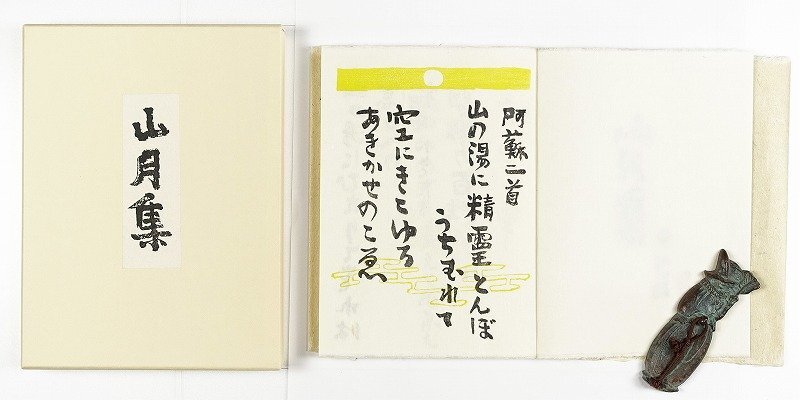 山月集
阿蘇二首
山の湯に精霊とんぼ
うちむれて
空にきこゆる
あきかせのこゑ